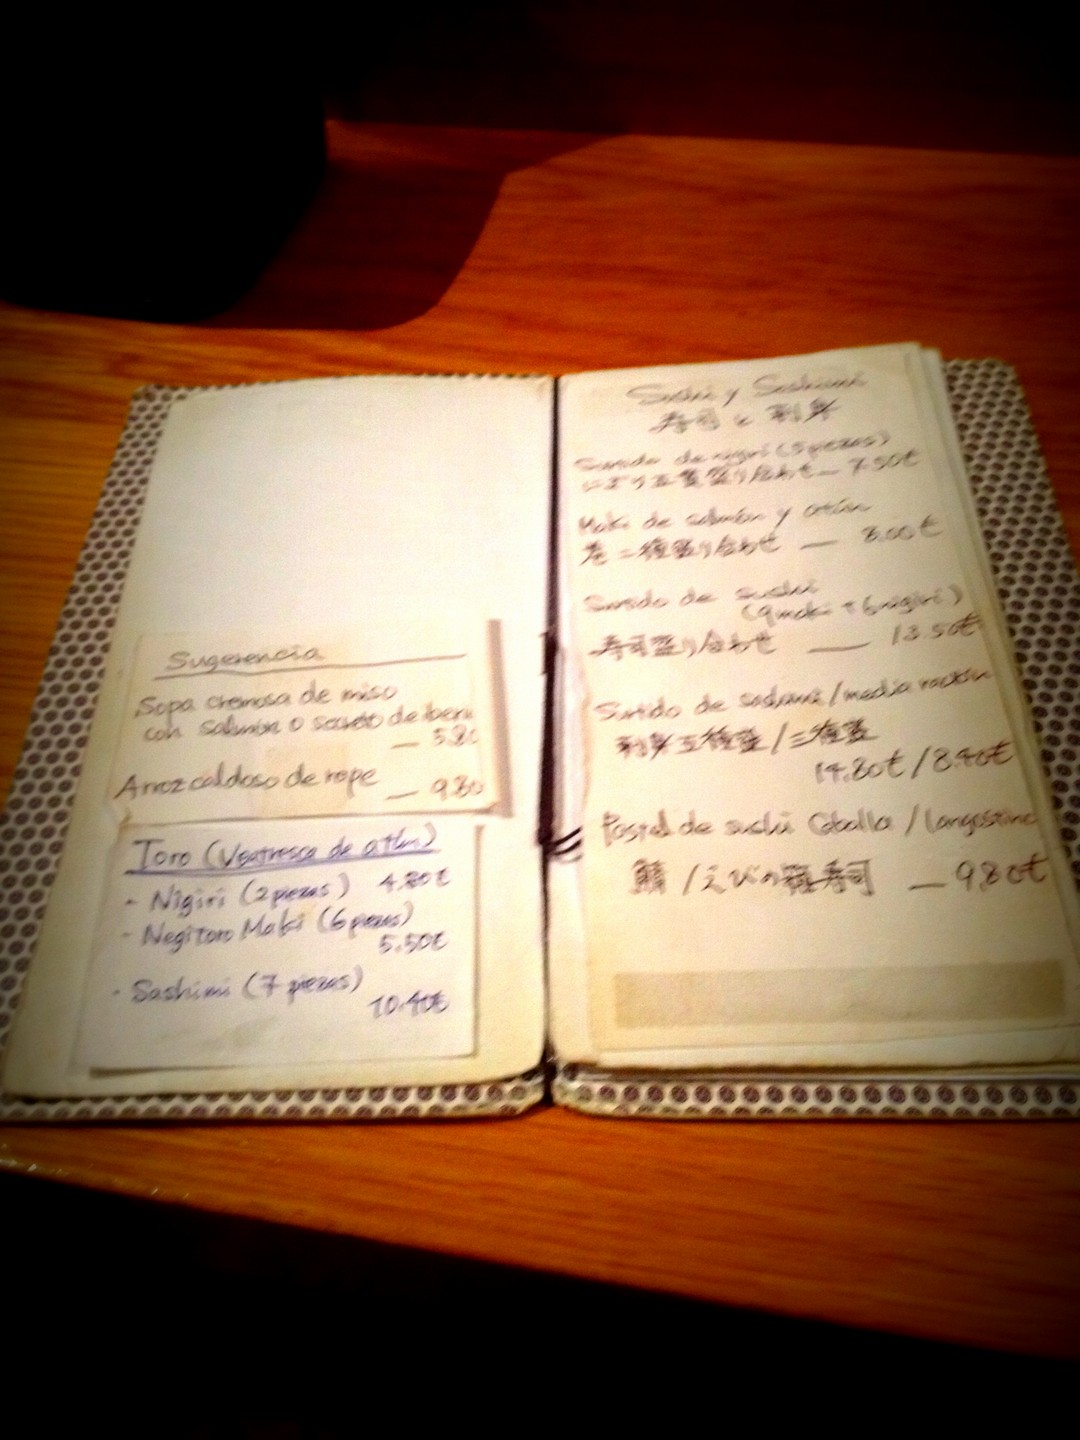 Sugerencia
Sopa cremosa de miso
con salmón o secreto de iberi
— 5.80
Arroz caldoso de rape — 9.80
Toro (Ventresca de atún)
- Nigiri (2 piezas) 4.80€
- Negitoro Maki (6 piezas)
5.50€
- Sashimi (7 piezas)
10.40€
Sushi y Sashimi
寿司と刺身
Surtido de nigiri (5 piezas)
にぎり五貫盛り合わせ — 7.50€
Maki de salmón y atún
巻二種盛り合わせ — 8.00€
Surtido de sushi
(9 maki + 6 nigiri)
寿司盛り合わせ — 13.50€
Surtido de sashimi / media ración
刺身五種盛 / 三種盛
14.80€ / 8.40€
Pastel de sushi Caballa / langostino
/ えびの 寿司 — 9.80€